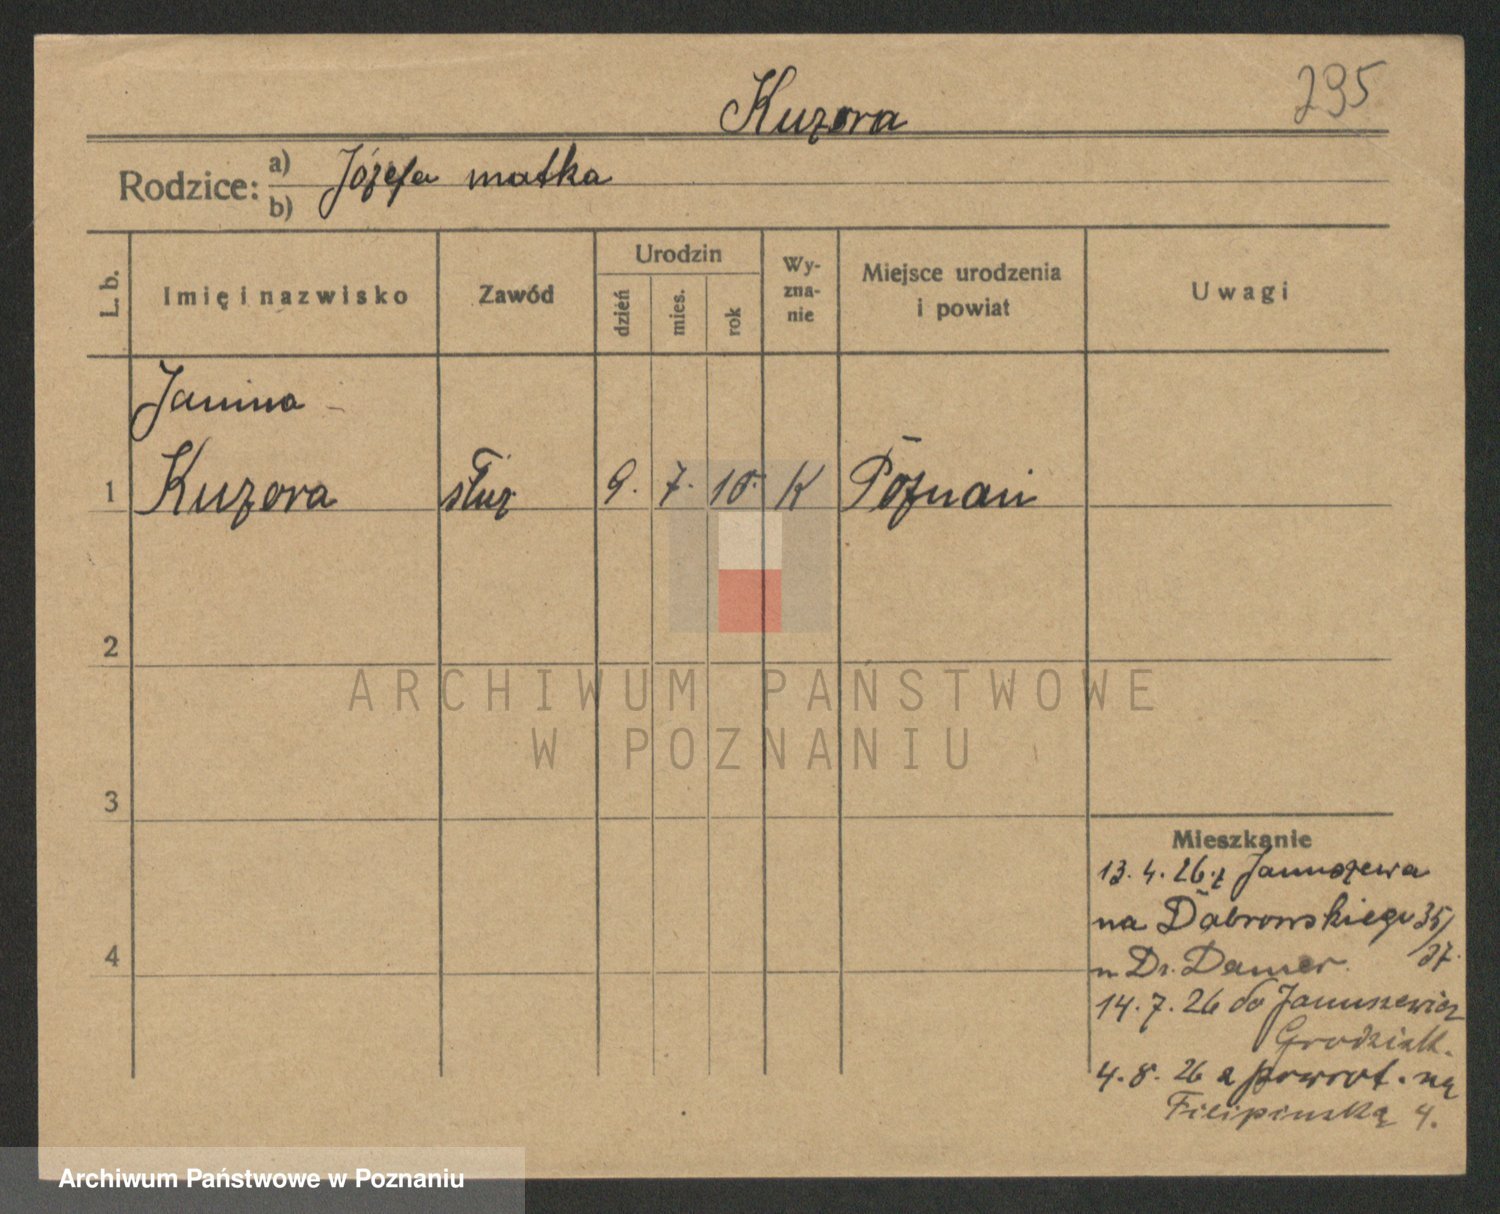 295
Kuzora
Rodzice: a) Józefa matka
b)
L. b.
Imię i nazwisko
Zawód
Urodzin
dzień
mies.
rok
Wy-
zna-
nie
Miejsce urodzenia
i powiat
Uwagi
Janina
1 Kuzora służ 9. 7. 10. K Poznań
2
3
4
Mieszkanie
13. 4. 26. z Januszewa
na Dąbrowskiego 35/
37.
u Dr.
14. 7. 26 do Januszewicz
Grodzisk.
4. 8. 26 z powrot. na
Filipińską 4.
ARCHIWUM PAŃSTWOWE
W POZNANIU
Archiwum Państwowe w Poznaniu